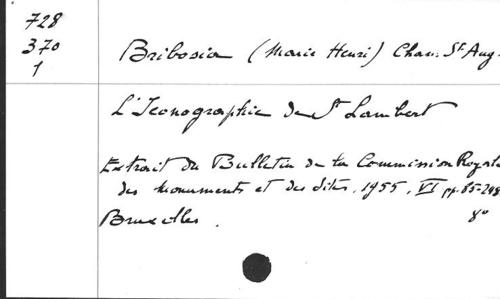 728
370
1
Bribosia (Marie Henri) Chan. St. Aug.
L'Iconographie de St Lambert
Extrait du Bulletin de la Commission Royale
des Monuments et des Sites, 1955, VI pp. 85-248
Bruxelles. 8°